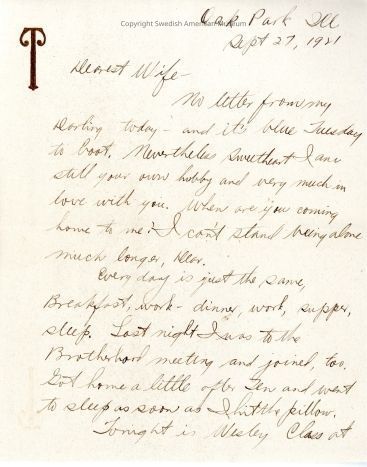 Copyright Swedish American Museum
Oak Park Ill
Sept 27, 1921
T
Dearest Wife-
No letter from my
Darling today- and it's blue Tuesday
to boot. Nevertheless Sweetheart I am
still your own hubby and very much in
love with you. When are you coming
home to me? I can't stand being alone
much longer, Dear.
Every day is just the same,
Breakfast, work- dinner, work, supper,
sleep. Last night I was to the
Brotherhood meeting and joined, too.
Got home a little after Ten and went
to sleep as soon as I hit the pillow.
Tonight is Wesley Class at